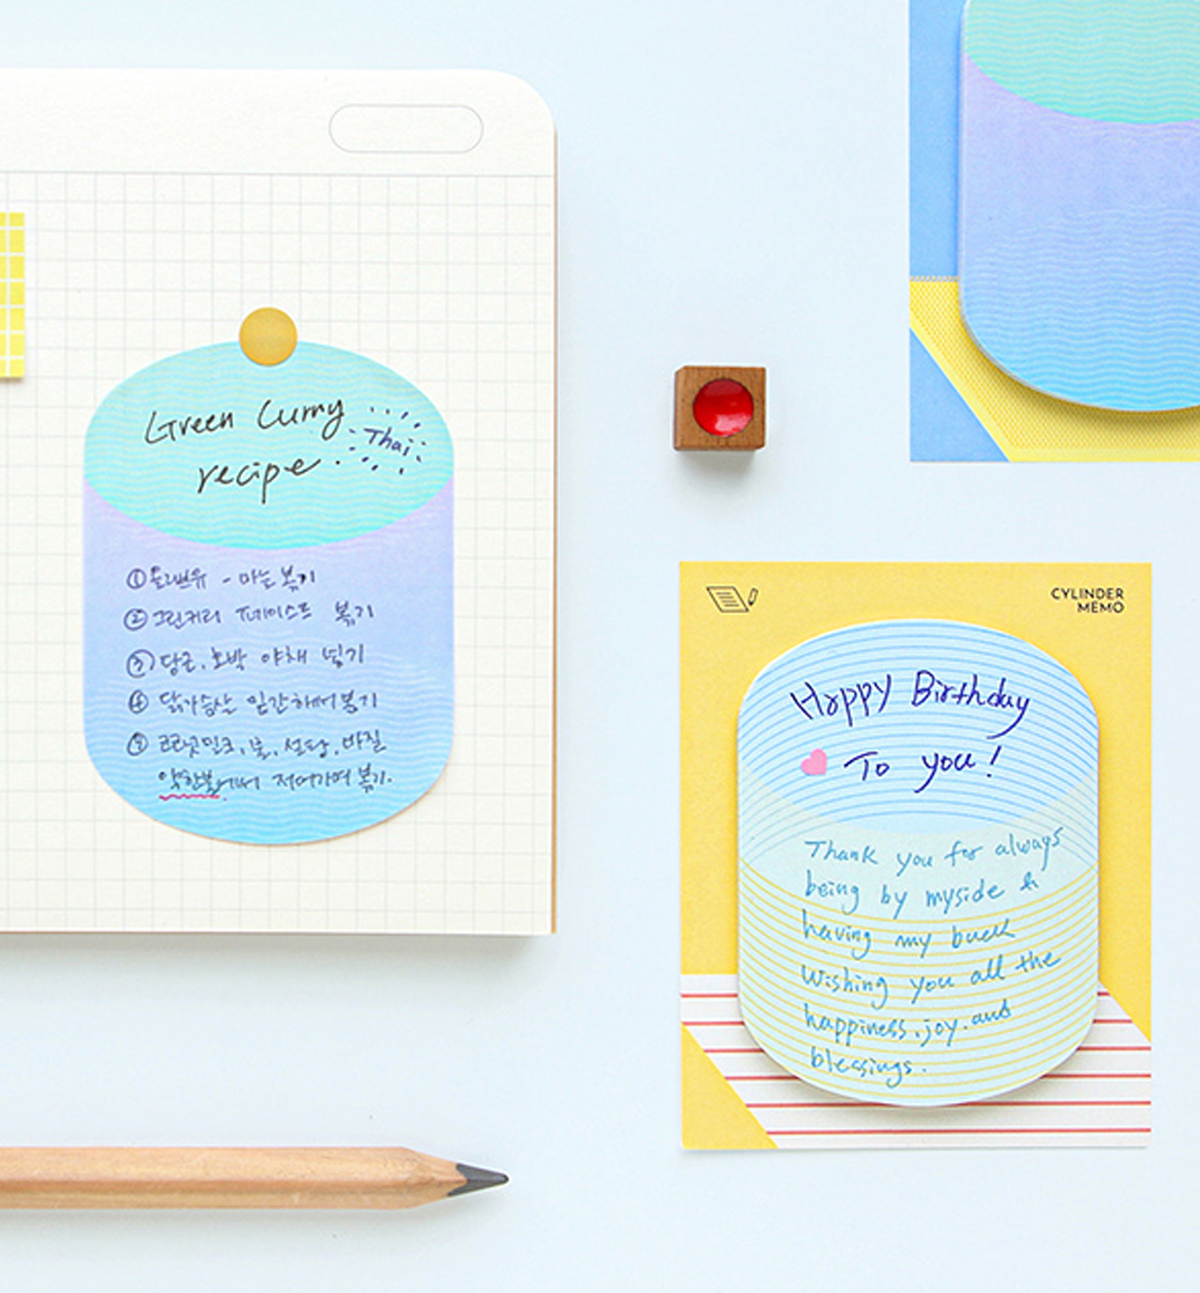 Green Curry
Thai
recipe.
① 올리브유 - 마늘 볶기
② 그린커리 페이스트 볶기
③ 당근, 호박 야채 넣기
④ 닭가슴살 밑간해서 볶기
⑤ 코코넛밀크, 물, 설탕, 바질
약한불에서 저어가며 볶기.
CYLINDER
MEMO
Happy Birthday
To you!
Thank you for always
being by myside &
having my back
Wishing you all the
happiness, joy, and
blessings.